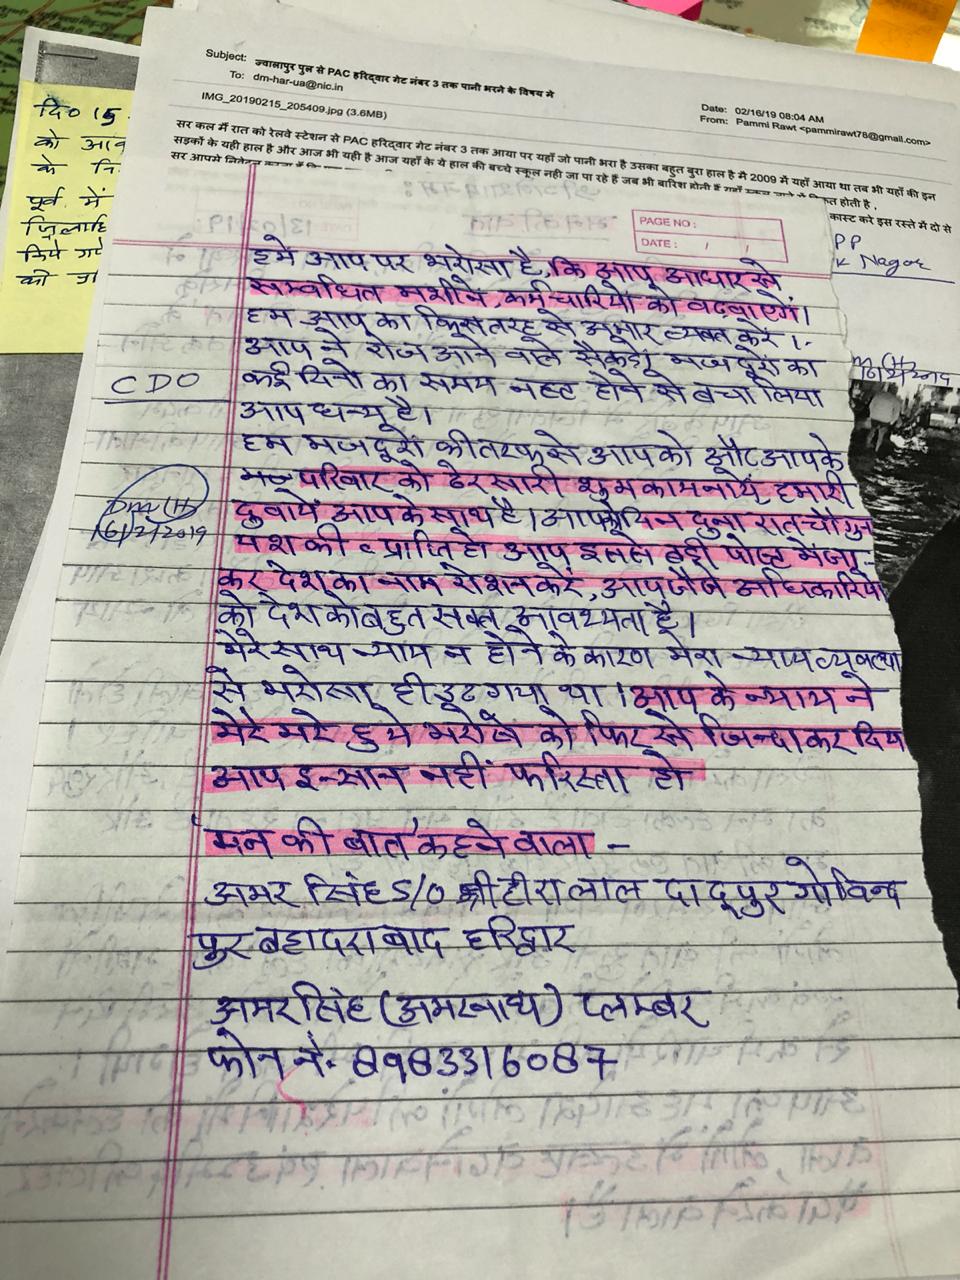 Subject: ज्वालापुर पुल से PAC हरिद्वार गेट नंबर 3 तक पानी भरने के विषय मे
To: dm-har-ua@nic.in
Date: 02/16/19 08:04 AM
From: Pammi Rawt <pammirawt78@gmail.com>
IMG_20190215_205409.jpg (3.6MB)
सर कल मैं रात को रेलवे स्टेशन से PAC हरिद्वार गेट नंबर 3 तक आया पर यहाँ जो पानी भरा है उसका बहुत बुरा हाल है मै 2009 में यहाँ आया था तब भी यहाँ की इन
सड़कों के यही हाल है और आज भी यही है आज यहाँ के ये हाल की बच्चे स्कूल नही जा पा रहे हैं जब भी बारिश होती हैं यहाँ स्कूल जाने में दिक्कत होती है ,
सर आपसे निवेदन
कास्ट करे इस रस्ते में दो से
दि० 15
को
के
पूर्व में
जिलाधि
किये गये
को
PP
Nagar
PAGE NO :
DATE : / /
हमे आप पर भरोसा है, कि आप आधार से
सम्बोधित मशीने, कर्मचारियो को बढवाएगे।
हम आप का किस तरह से आभार व्यक्त करें।
आप ने रोज आने वाले सैकड़ो मजदूरो का
कई दिनो का समय नष्ट होने से बचा लिया
आप धन्य है।
CDO
हम मजदूरो की तरफ से आपको और आपके
परिवार को ढेर सारी शुभ कामनायें, हमारी
दुवायें आपके साथ है। आपको दिन दुना रात चौगुना
यश की प्राप्ति हो आप इससे बड़ी पोस्ट
कर देश का नाम रोशन करें, आप जैसे अधिकारियो
की देश को बहुत सक्त आवश्यता है।
DM(H)
16/2/2019
मेरे साथ न्याय न होने के कारण मेरा न्याय व्यवस्था
से भरोसा ही टूट गया था। आप के न्याय ने
मेरे मरे हुये भरोसे को फिर से जिन्दा कर दिया
आप इन्सान नहीं फरिस्ता हो
'मन की बात' कहने वाला –
अमर सिंह S/O श्री हीरा लाल दादूपुर गोविन्द
पुर बहादराबाद हरिद्वार
अमर सिंह (अमरनाथ) प्लम्बर
फोन नं. 8983316087